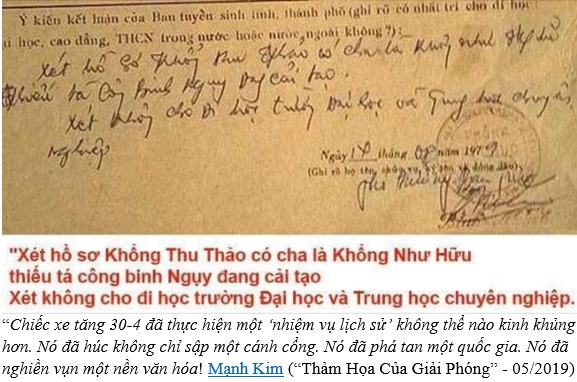 Ý kiến kết luận của Ban tuyển sinh tỉnh, thành phố (ghi rõ có nhất trí cho đi học
ại học, cao đẳng, THCN trong nước hoặc nước ngoài không?):
Xét hồ sơ Khổng Thu Thảo có cha là Khổng Như Hữu
thiếu tá Công Binh Ngụy đang cải tạo.
Xét không cho đi học trường Đại học và Trung học chuyên
Nghiệp
Ngày 14 tháng 08 năm 1979
(Ghi rõ họ tên, chức vụ, ký tên và đóng dấu)
"Xét hồ sơ Khổng Thu Thảo có cha là Khổng Như Hữu
thiếu tá công binh Ngụy đang cải tạo
Xét không cho đi học trường Đại học và Trung học chuyên nghiệp.
“Chiếc xe tăng 30-4 đã thực hiện một ‘nhiệm vụ lịch sử’ không thể nào kinh khủng
hơn. Nó đã húc không chỉ sập một cánh cổng. Nó đã phá tan một quốc gia. Nó đã
nghiền vụn một nền văn hóa! Mạnh Kim (“Thảm Họa Của Giải Phóng” - 05/2019)